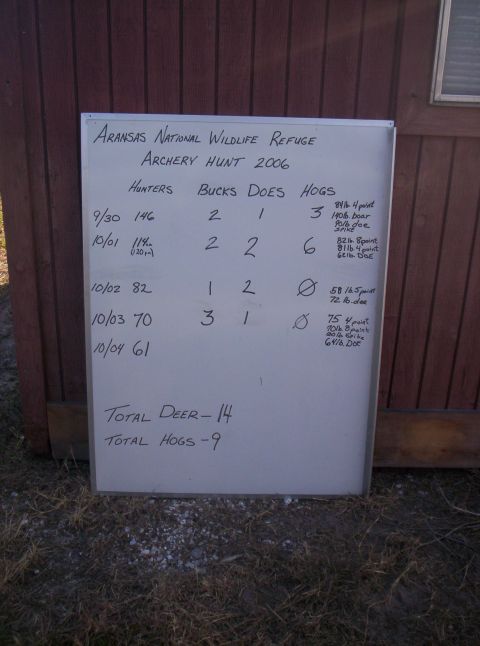 ARANSAS NATIONAL WILDLIFE REFUGE
ARCHERY HUNT 2006
HUNTERS BUCKS DOES HOGS
9/30 146 2 1 3
84lb. 4 point
140lb. boar
90lb. doe
spike
10/01 114am 2 2 6
(120pm)
82lb 8point
81lb. 4 point
62lb. DOE
10/02 82 1 2 Ø
58 lb. 5 point
72 lb. doe
10/03 70 3 1 Ø
75 4 point
70lb 8 point
spike
64lb. DOE
10/04 61
TOTAL DEER - 14
TOTAL HOGS - 9